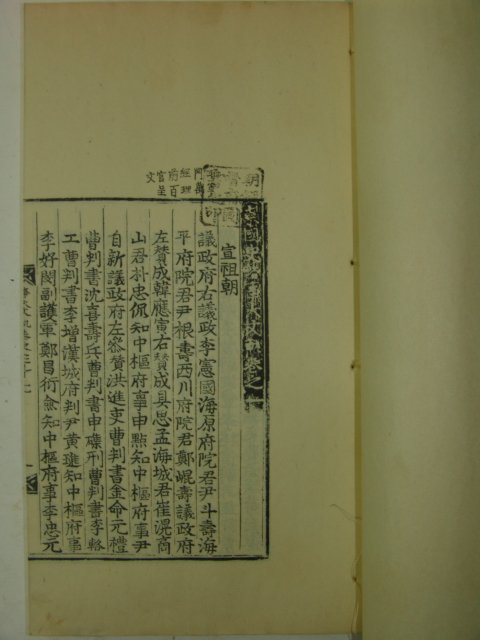 宣祖朝
議政府右議政李憲國海原府院君尹斗壽海
平府院君尹根壽西川府院君鄭崐壽議政府
左贊成韓應寅右贊成具思孟海城君崔滉商
山君朴忠侃知中樞府事申點知中樞府事尹
自新議政府左參贊洪進吏曹判書金命元禮
曹判書沈喜壽兵曹判書申磼刑曹判書李輅
工曹判書李增漢城府判尹黃璡知中樞府事
李好閔副護軍鄭昌衍僉知中樞府事李忠元
經理
前百
官呈
文